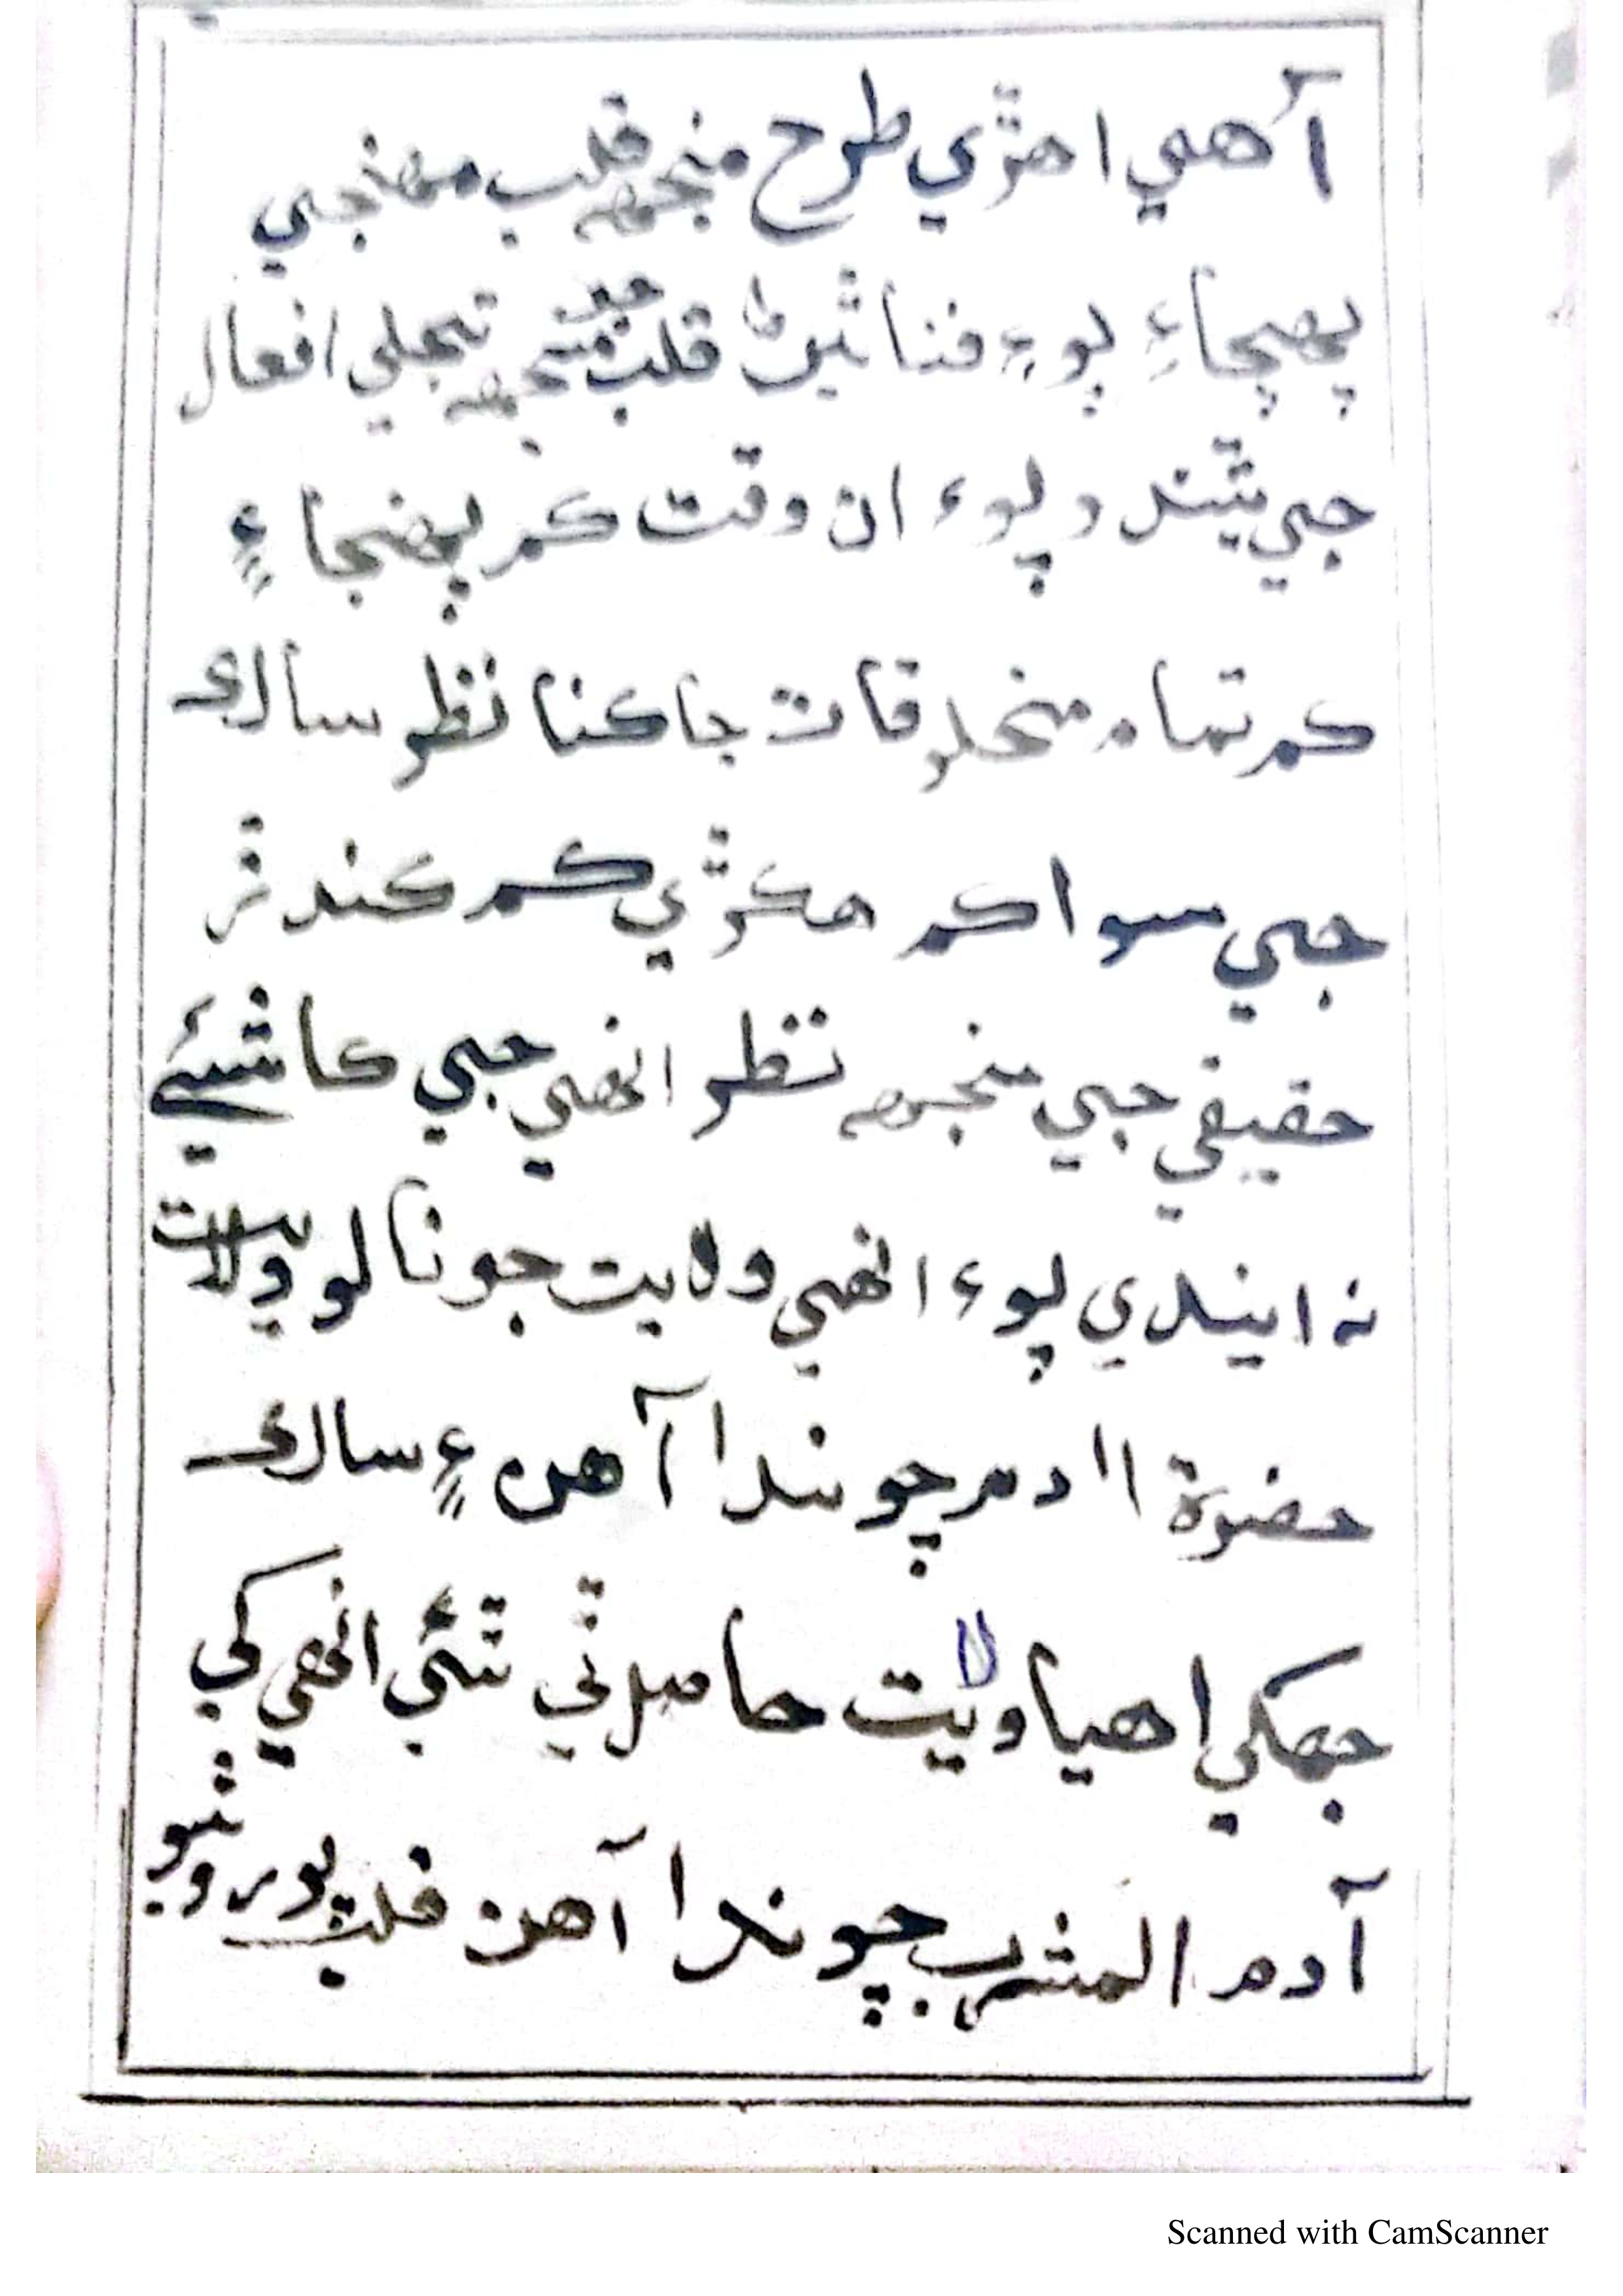 آهي اهڙي طرح منجهہ قلب مهنجي
پهچاءِ پوءِ فنا ٿيڻ قلب منجهہ تجلي افعال
جي ٿيندو پوء ان وقت ڪم پهنجا ۽
ڪم تمام مخلوقات جا ڪنا نظر سالڪ
جي سوا ڪم هڪڙي ڪم ڪندڙ
حقيقي جي منجهہ نظر انهي جي ڪا شيئي
نہ ايندي پوء انهي ولايت جو نالو ولايت
حضرة اادم چوندا آهن ۽ سالڪ
جهکي اهيا ولايت حاصل ٿي ٿئي انهي کي
آدم المشرب چوندا آهن قلب پورو ٿيو
Scanned with CamScanner